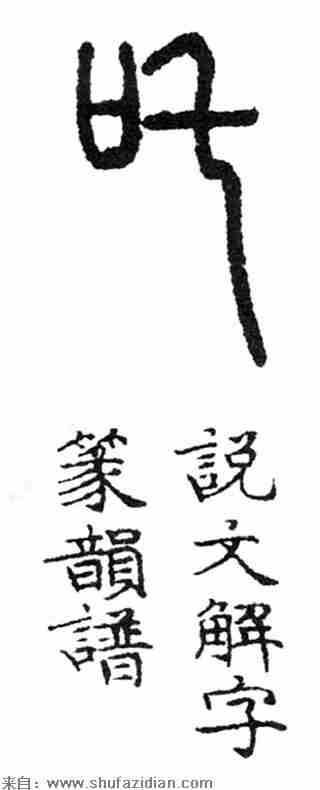 說文解字
篆韻譜
来自：www.shufazidian.com